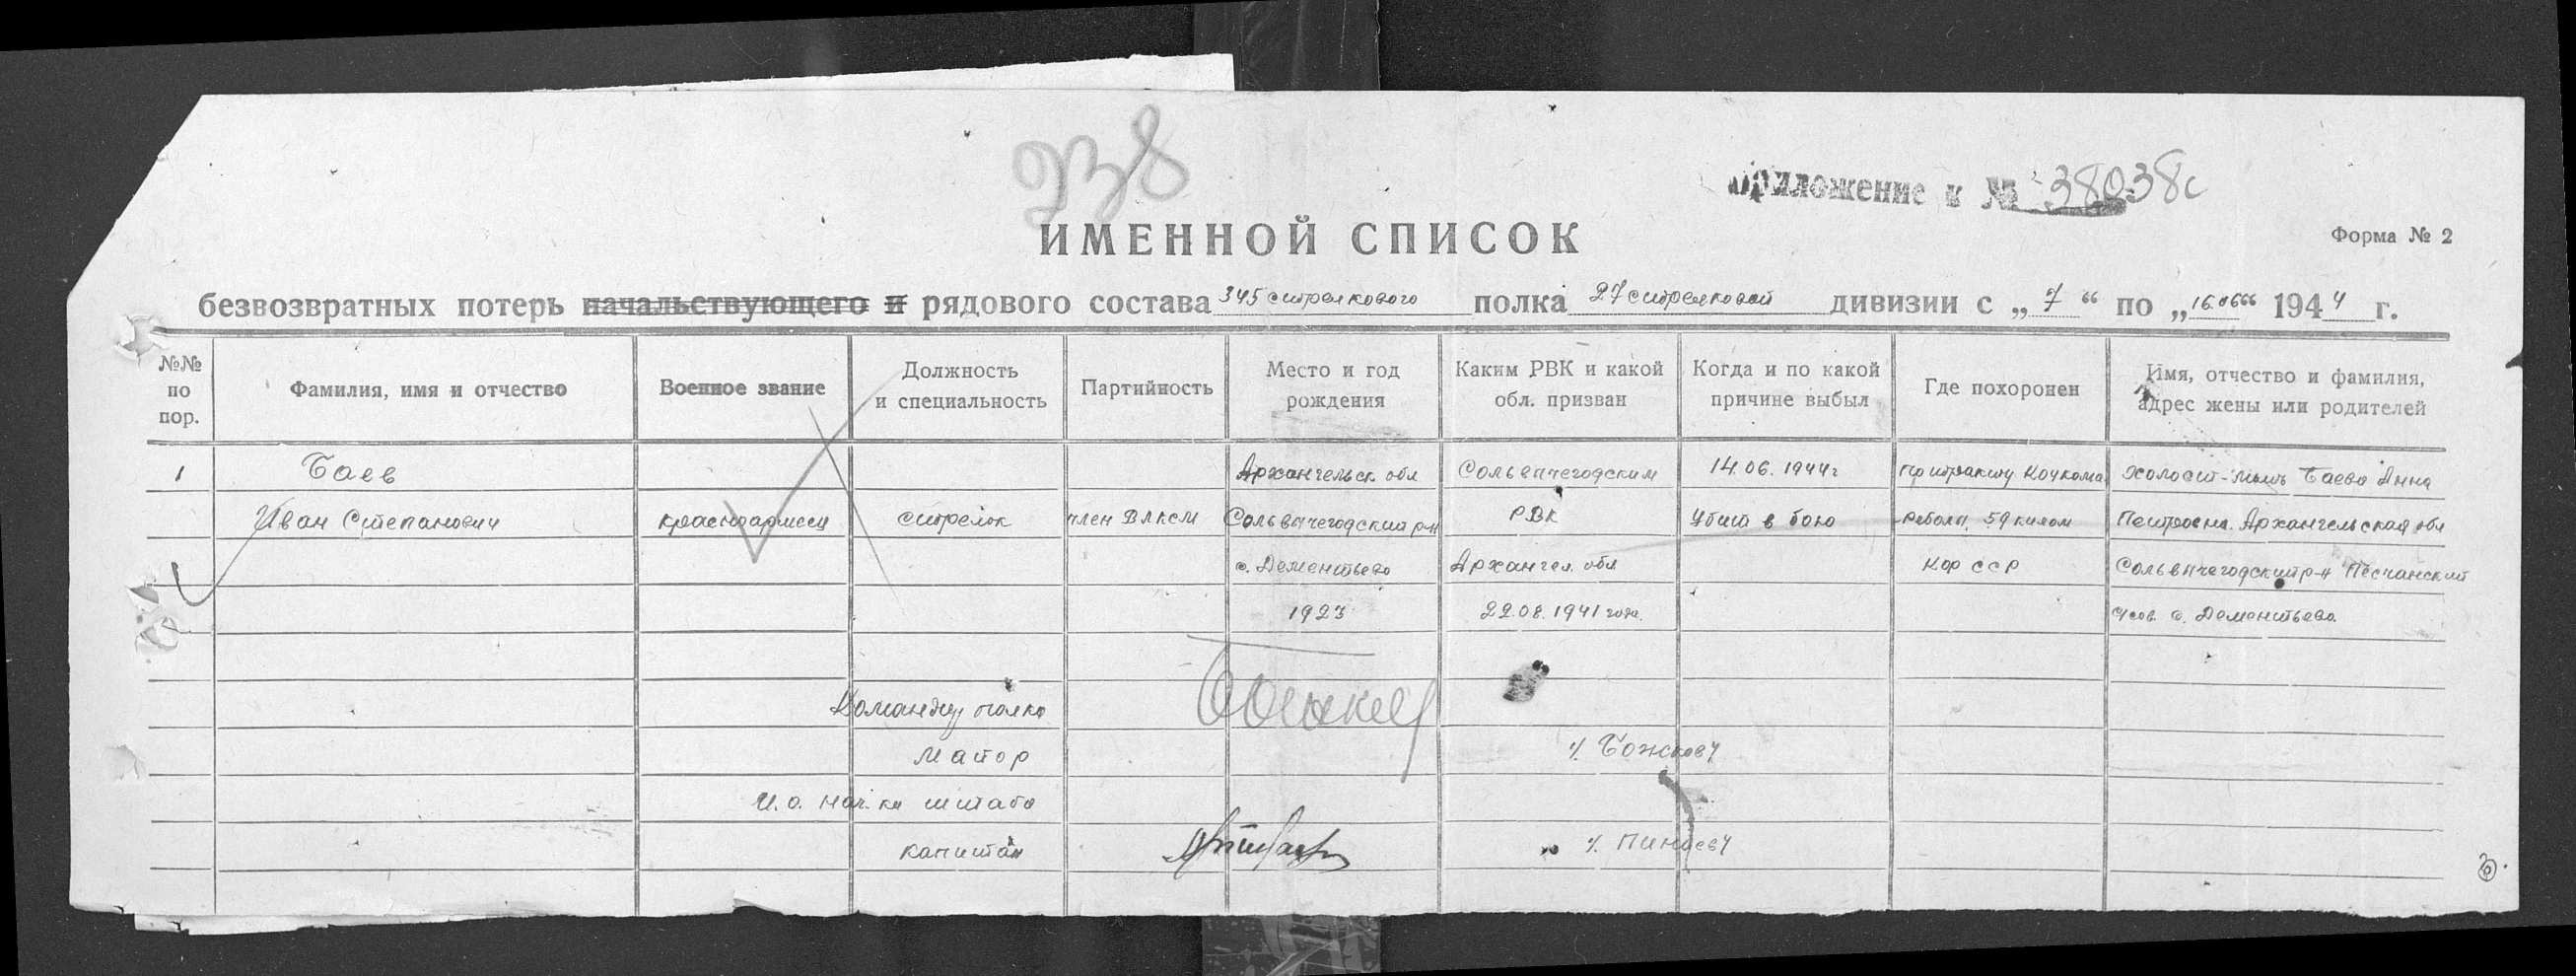 238
Приложение к № 38038с
ИМЕННОЙ СПИСОК
Форма № 2
безвозвратных потерь начальствующего и рядового состава 345 стрелкового полка 27 стрелковой дивизии с „ 7 “ по „ 16.06 “ 1944 г.
№№ по пор.
Фамилия, имя и отчество
Военное звание
Должность и специальность
Партийность
Место и год рождения
Каким РВК и какой обл. призван
Когда и по какой причине выбыл
Где похоронен
Имя, отчество и фамилия, адрес жены или родителей
1 Баев Архангельск обл Сольвычегодским 14.06.1944г При тракту Кочкома Холост - мать Баева Анна
Иван Степанович красноармеец стрелок член ВЛКСМ Сольвычегодский р-н РВК Убит в бою Реболы 59 килом Петровна. Архангельская обл
д. Дементьево Архангел. обл Кар ССР Сольвычегодский р-н Песчанский
1923 22.08.1941 года. с/сов. д. Дементьево.
Командир полка
Майор /. Божков/
И.о. нач-ка штаба
капитан /. Пинаев/